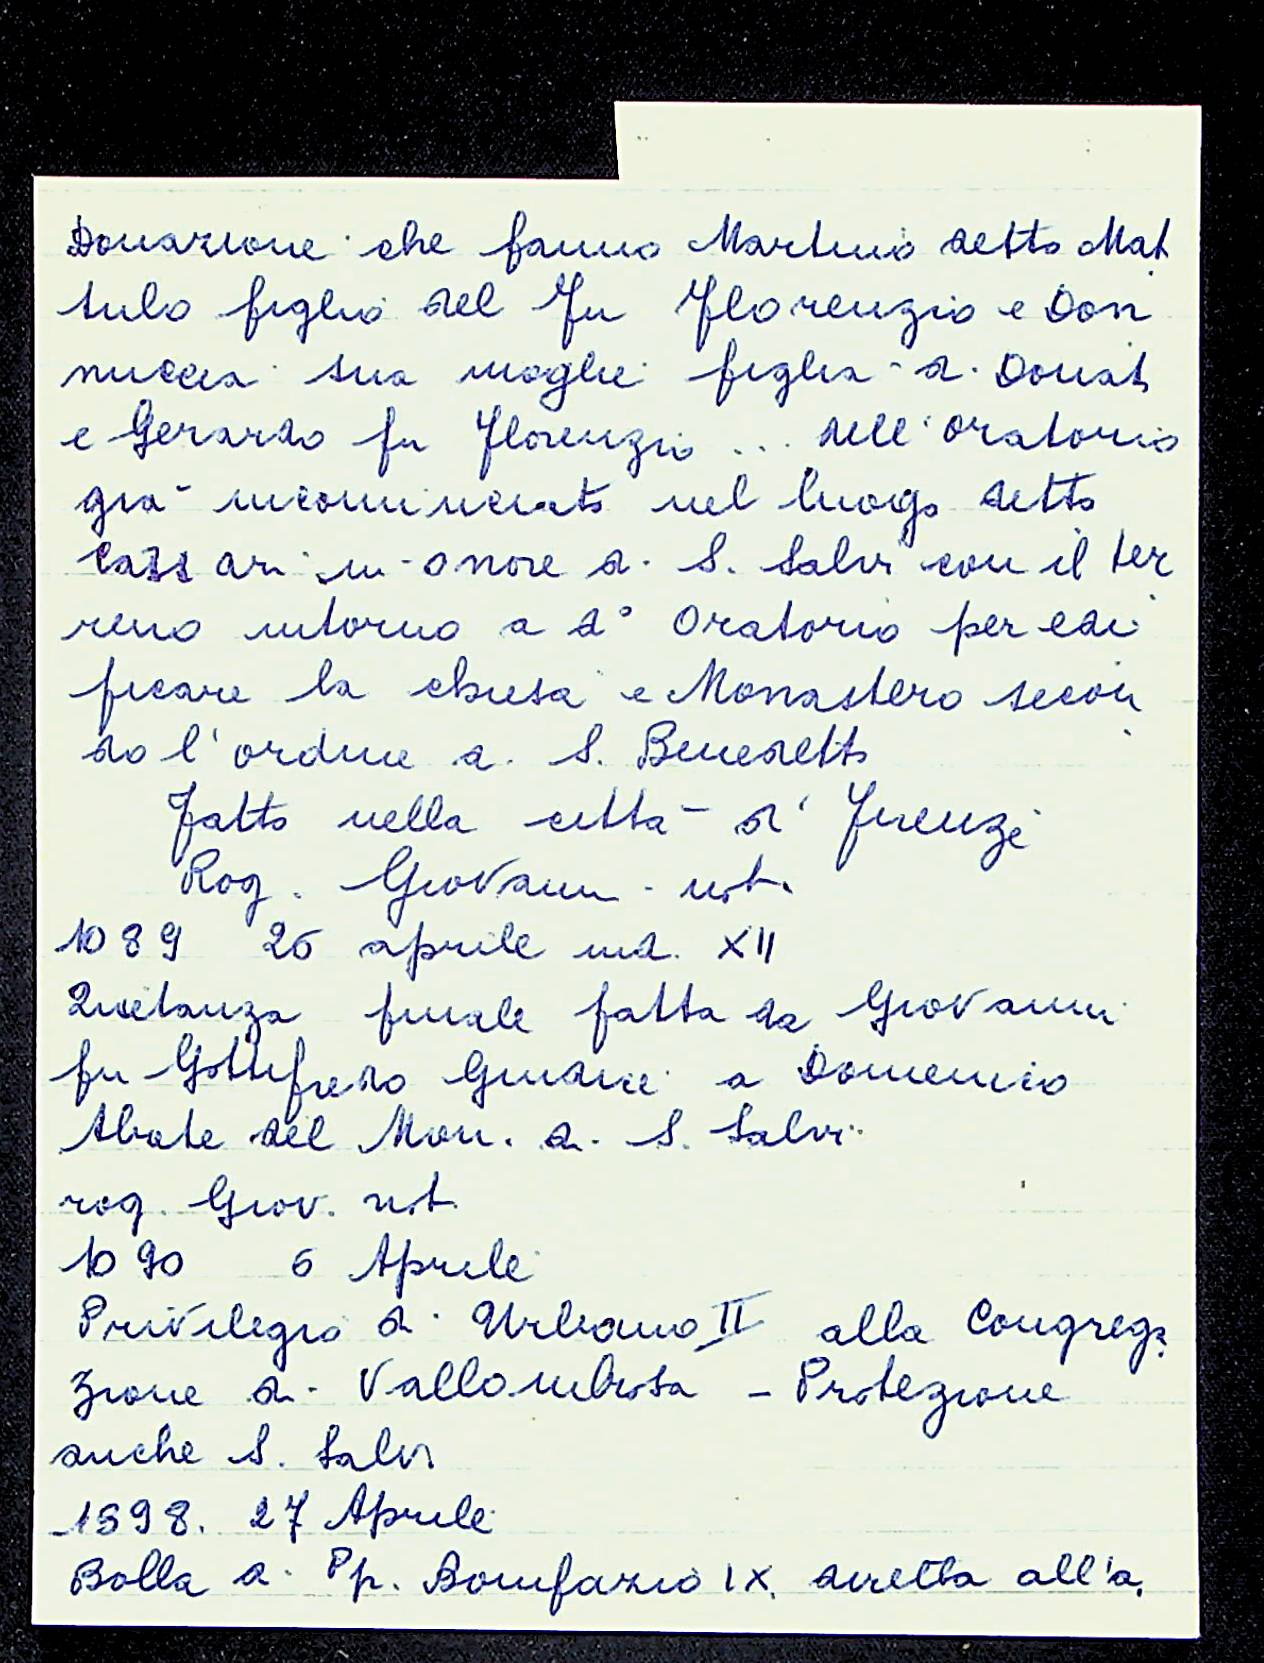 Donazione che fanno Martino detto Mat
tulo figlio del fu Florenzio e Don
nuccia sua moglie figlia di Donat
e Gerardo fu Florenzio ... dell'oratorio
già incominciato nel luogo detto
in onore di S. Salvi con il ter
reno intorno a d° Oratorio per edi
ficare la chiesa e Monastero secon
do l'ordine di S. Benedetto
Fatto nella città di Firenze
Rog. Giovanni not.
1089 26 aprile ind. XII
Quietanza finale fatta da Giovanni
fu Gottifredo Giudice a Domenico
Abate del Mon. di S. Salvi
rog. Giov. not.
1090 6 Aprile
Privilegio di Urbano II alla Congrega
zione di Vallombrosa - Protezione
anche S. Salvi
1398. 27 Aprile
Bolla di Pp. Bonifazio IX. diretta all'a.